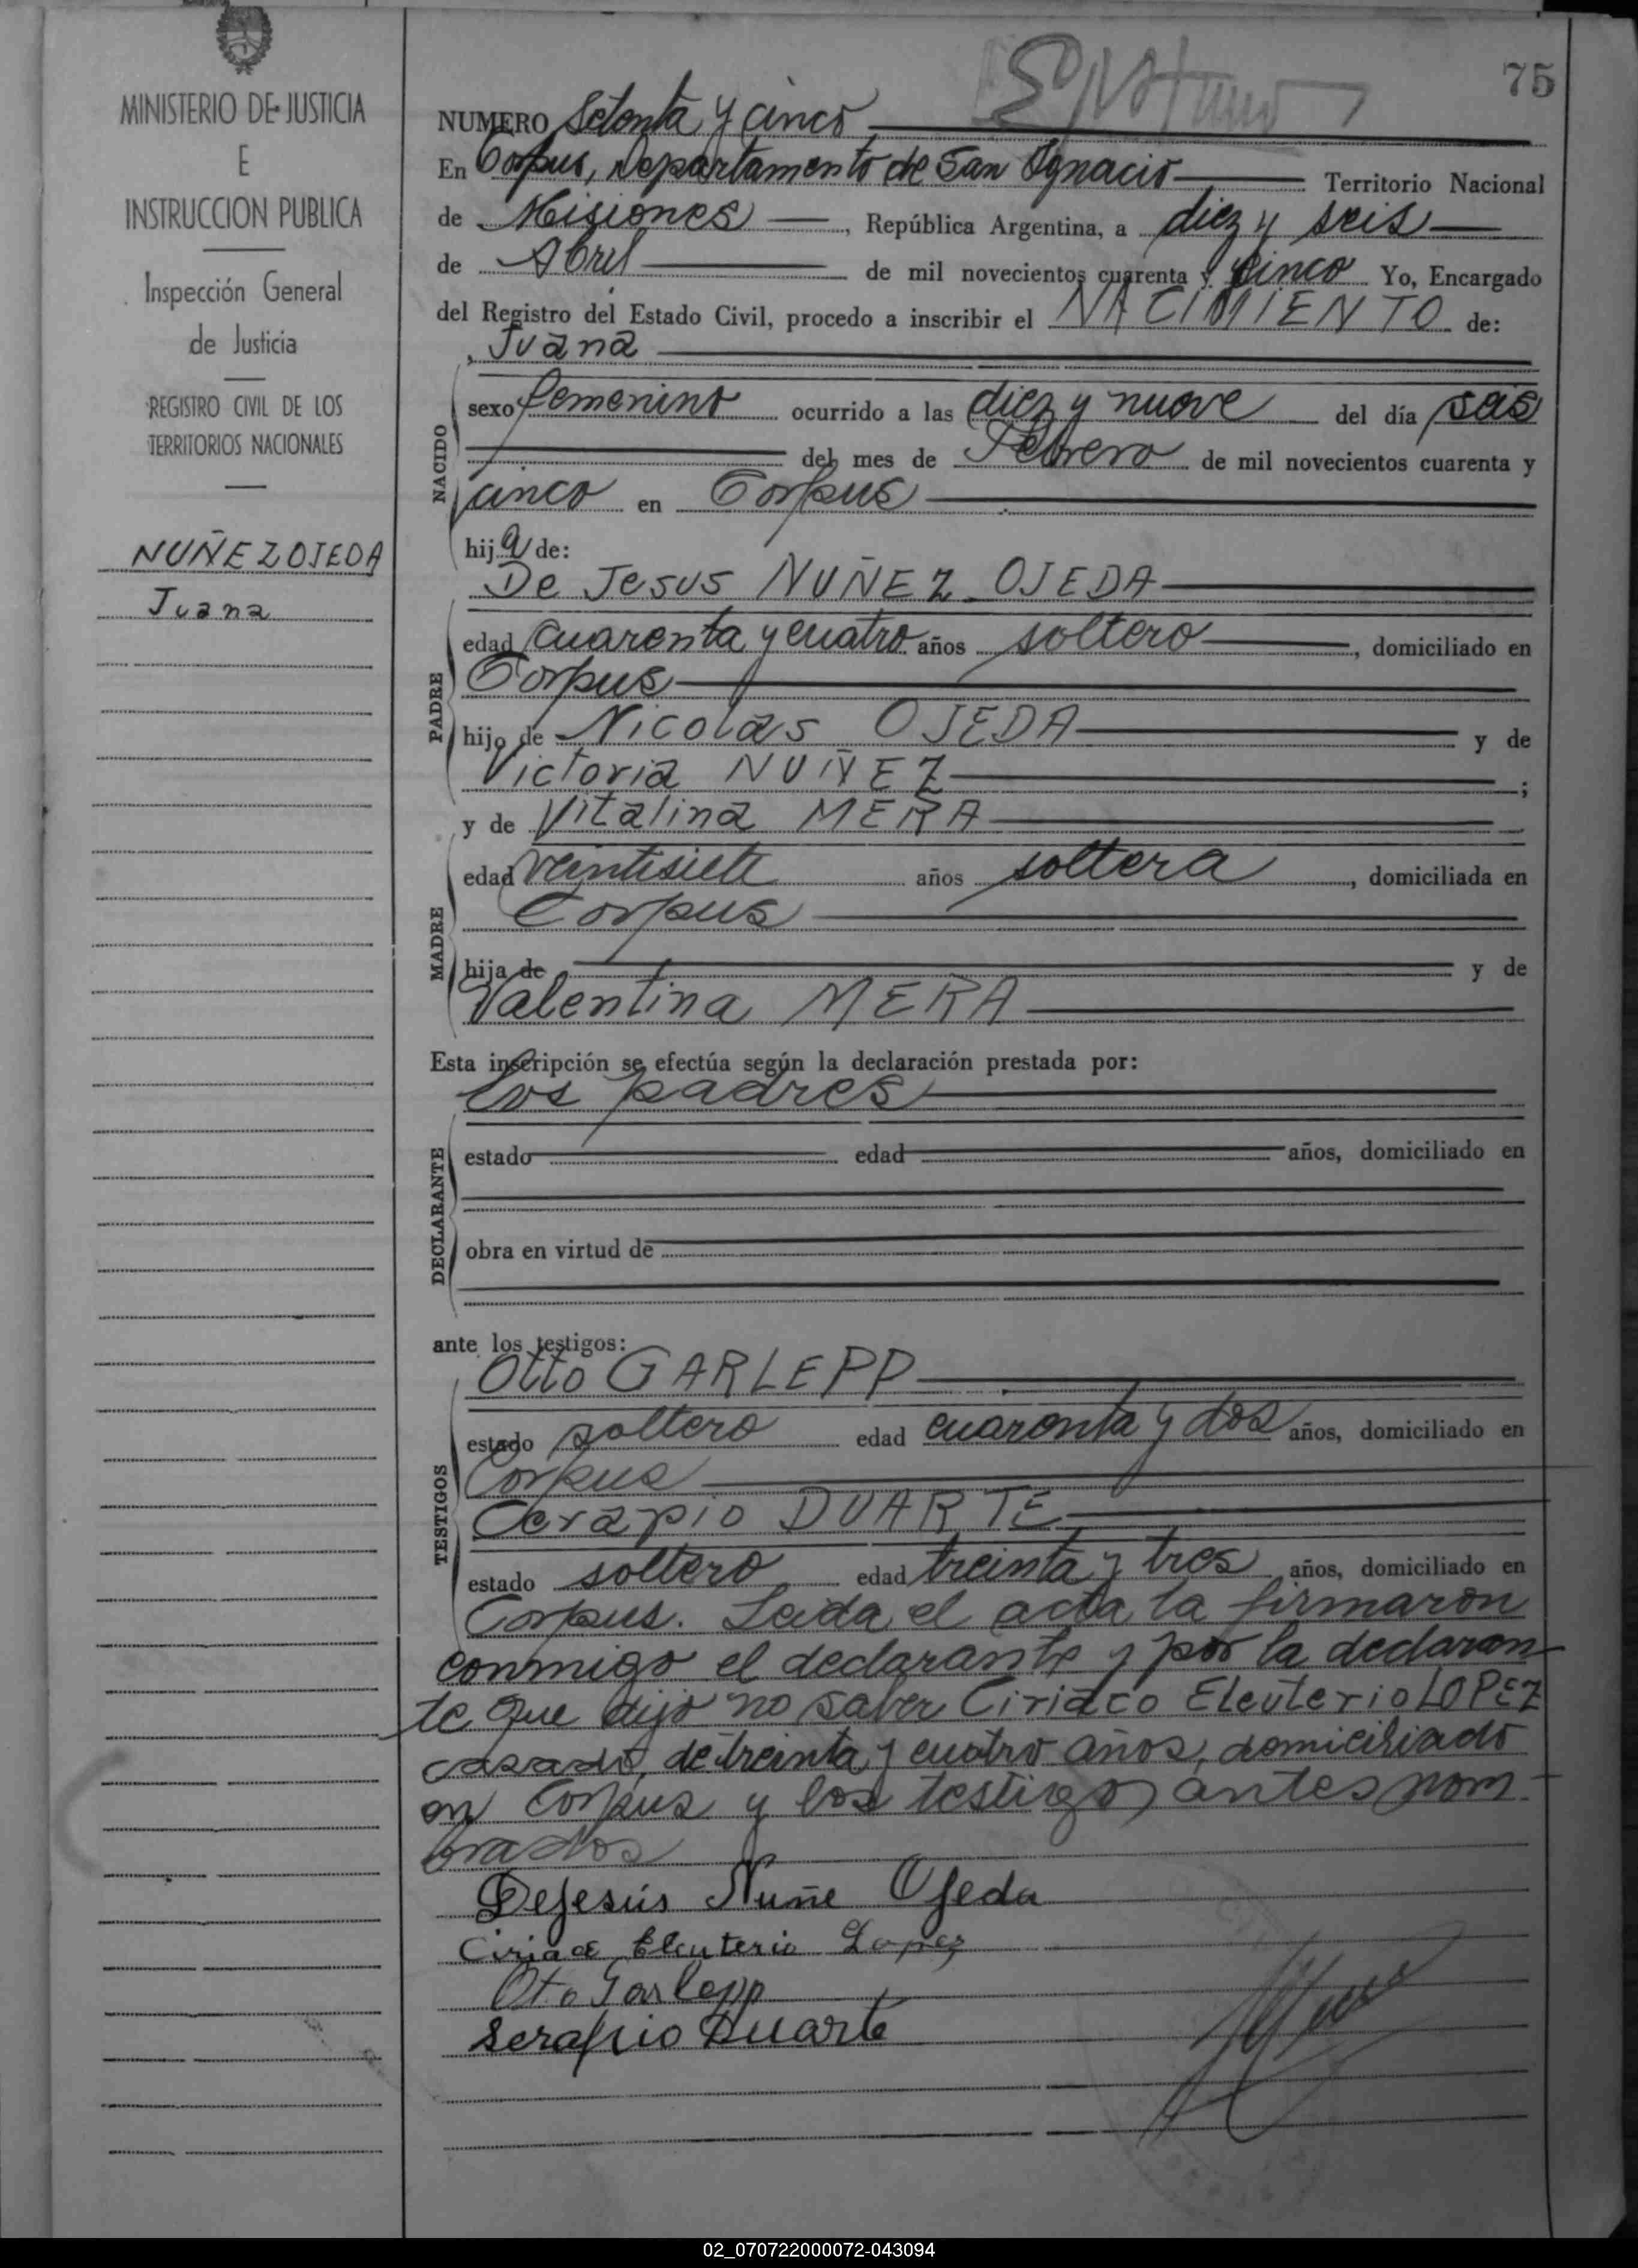 75
MINISTERIO DE JUSTICIA
E
INSTRUCCION PUBLICA
Inspección General
de Justicia
REGISTRO CIVIL DE LOS
TERRITORIOS NACIONALES
NUÑEZ OJEDA
Juana
NUMERO Setenta y cinco
En Corpus, Departamento de San Ignacio Territorio Nacional
de Misiones, República Argentina, a diez y seis
de Abril de mil novecientos cuarenta y cinco Yo, Encargado
del Registro del Estado Civil, procedo a inscribir el NACIMIENTO de:
Juana
NACIDO
sexo femenino ocurrido a las diez y nueve del día seis
del mes de Febrero de mil novecientos cuarenta y
cinco en Corpus
hija de:
De Jesus NUÑEZ OJEDA
PADRE
edad cuarenta y cuatro años soltero, domiciliado en
Corpus
hijo de Nicolas OJEDA y de
Victoria NUÑEZ;
y de Vitalina MERA
MADRE
edad veintisiete años soltera, domiciliada en
Corpus
hija de y de
Valentina MERA
Esta inscripción se efectúa según la declaración prestada por:
los padres
DECLARANTE
estado edad años, domiciliado en
obra en virtud de
ante los testigos:
Otto GARLEPP
TESTIGOS
estado soltero edad cuarenta y dos años, domiciliado en
Corpus
Cerapio DUARTE
estado soltero edad treinta y tres años, domiciliado en
Corpus. Leida el acta la firmaron
conmigo el declarante y por la declaran-
te que dijo no saber Ciriaco Eleuterio LOPEZ
casado, de treinta y cuatro años, domiciliado
en Corpus y los testigos antes nom-
brados
Dejesús Nuñe Ojeda
Ciriaco Eleuterio Lopez
Oto Garlepp
Serapio Duarte
02_070722000072-043094